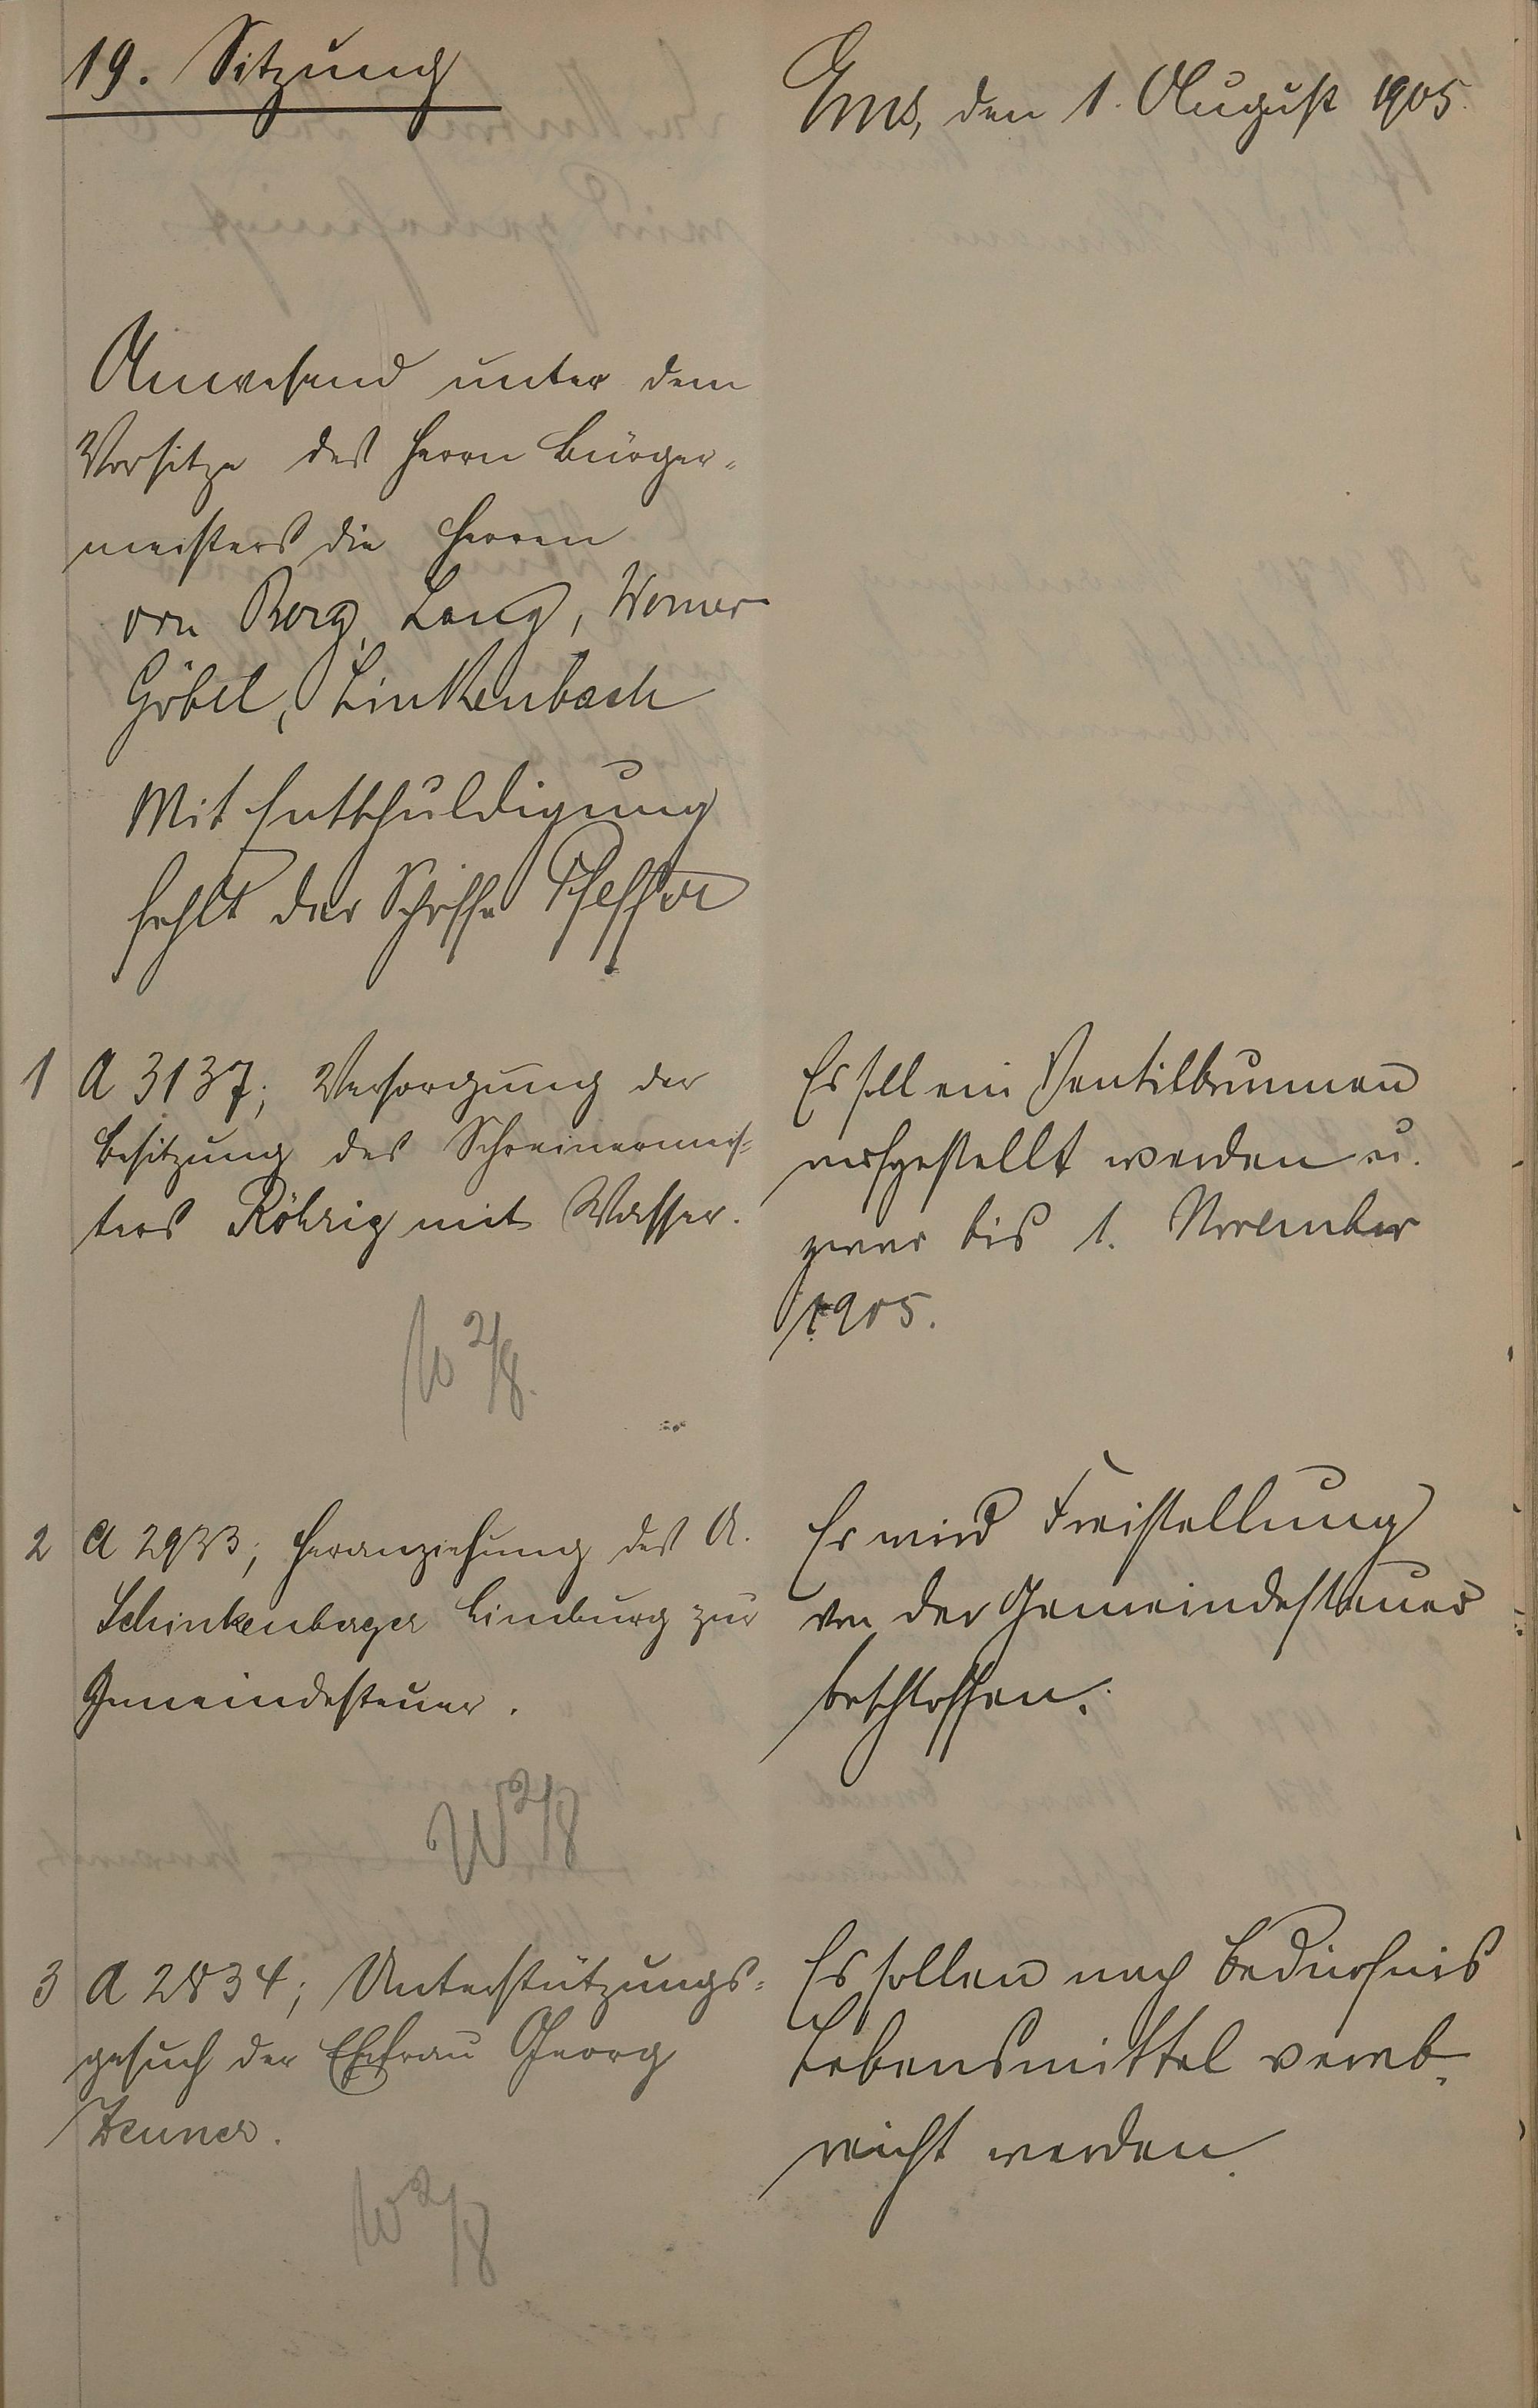 19. Sitzung
Ems, den 1. August 1905.
Anwesend unter dem
Vorsitze des Herrn Bürger-
meisters die Herren
von Berg, Lang, Werner
Göbel, Linkenbach
Mit Entschuldigung
fehlt der Schöffe Pfeffer
1 A 3137; Versorgung der
Besitzung des Schreinermeis-
ters Röhrig mit Wasser.
W 2/8.
Es soll ein Ventilbrunnen
aufgestellt werden u.
zwar bis 1. November
1905.
2 A 2933; Heranziehung des A.
Schinkenberger Limburg zur
Gemeindesteuer.
W 2/8
Es wird Freistellung
von der Gemeindesteuer
beschlossen.
3 A 2834; Unterstützungs-
gesuch der Ehefrau Georg
W 2/8
Es sollen nach Bedürfnis
Lebensmittel verab-
reicht werden.